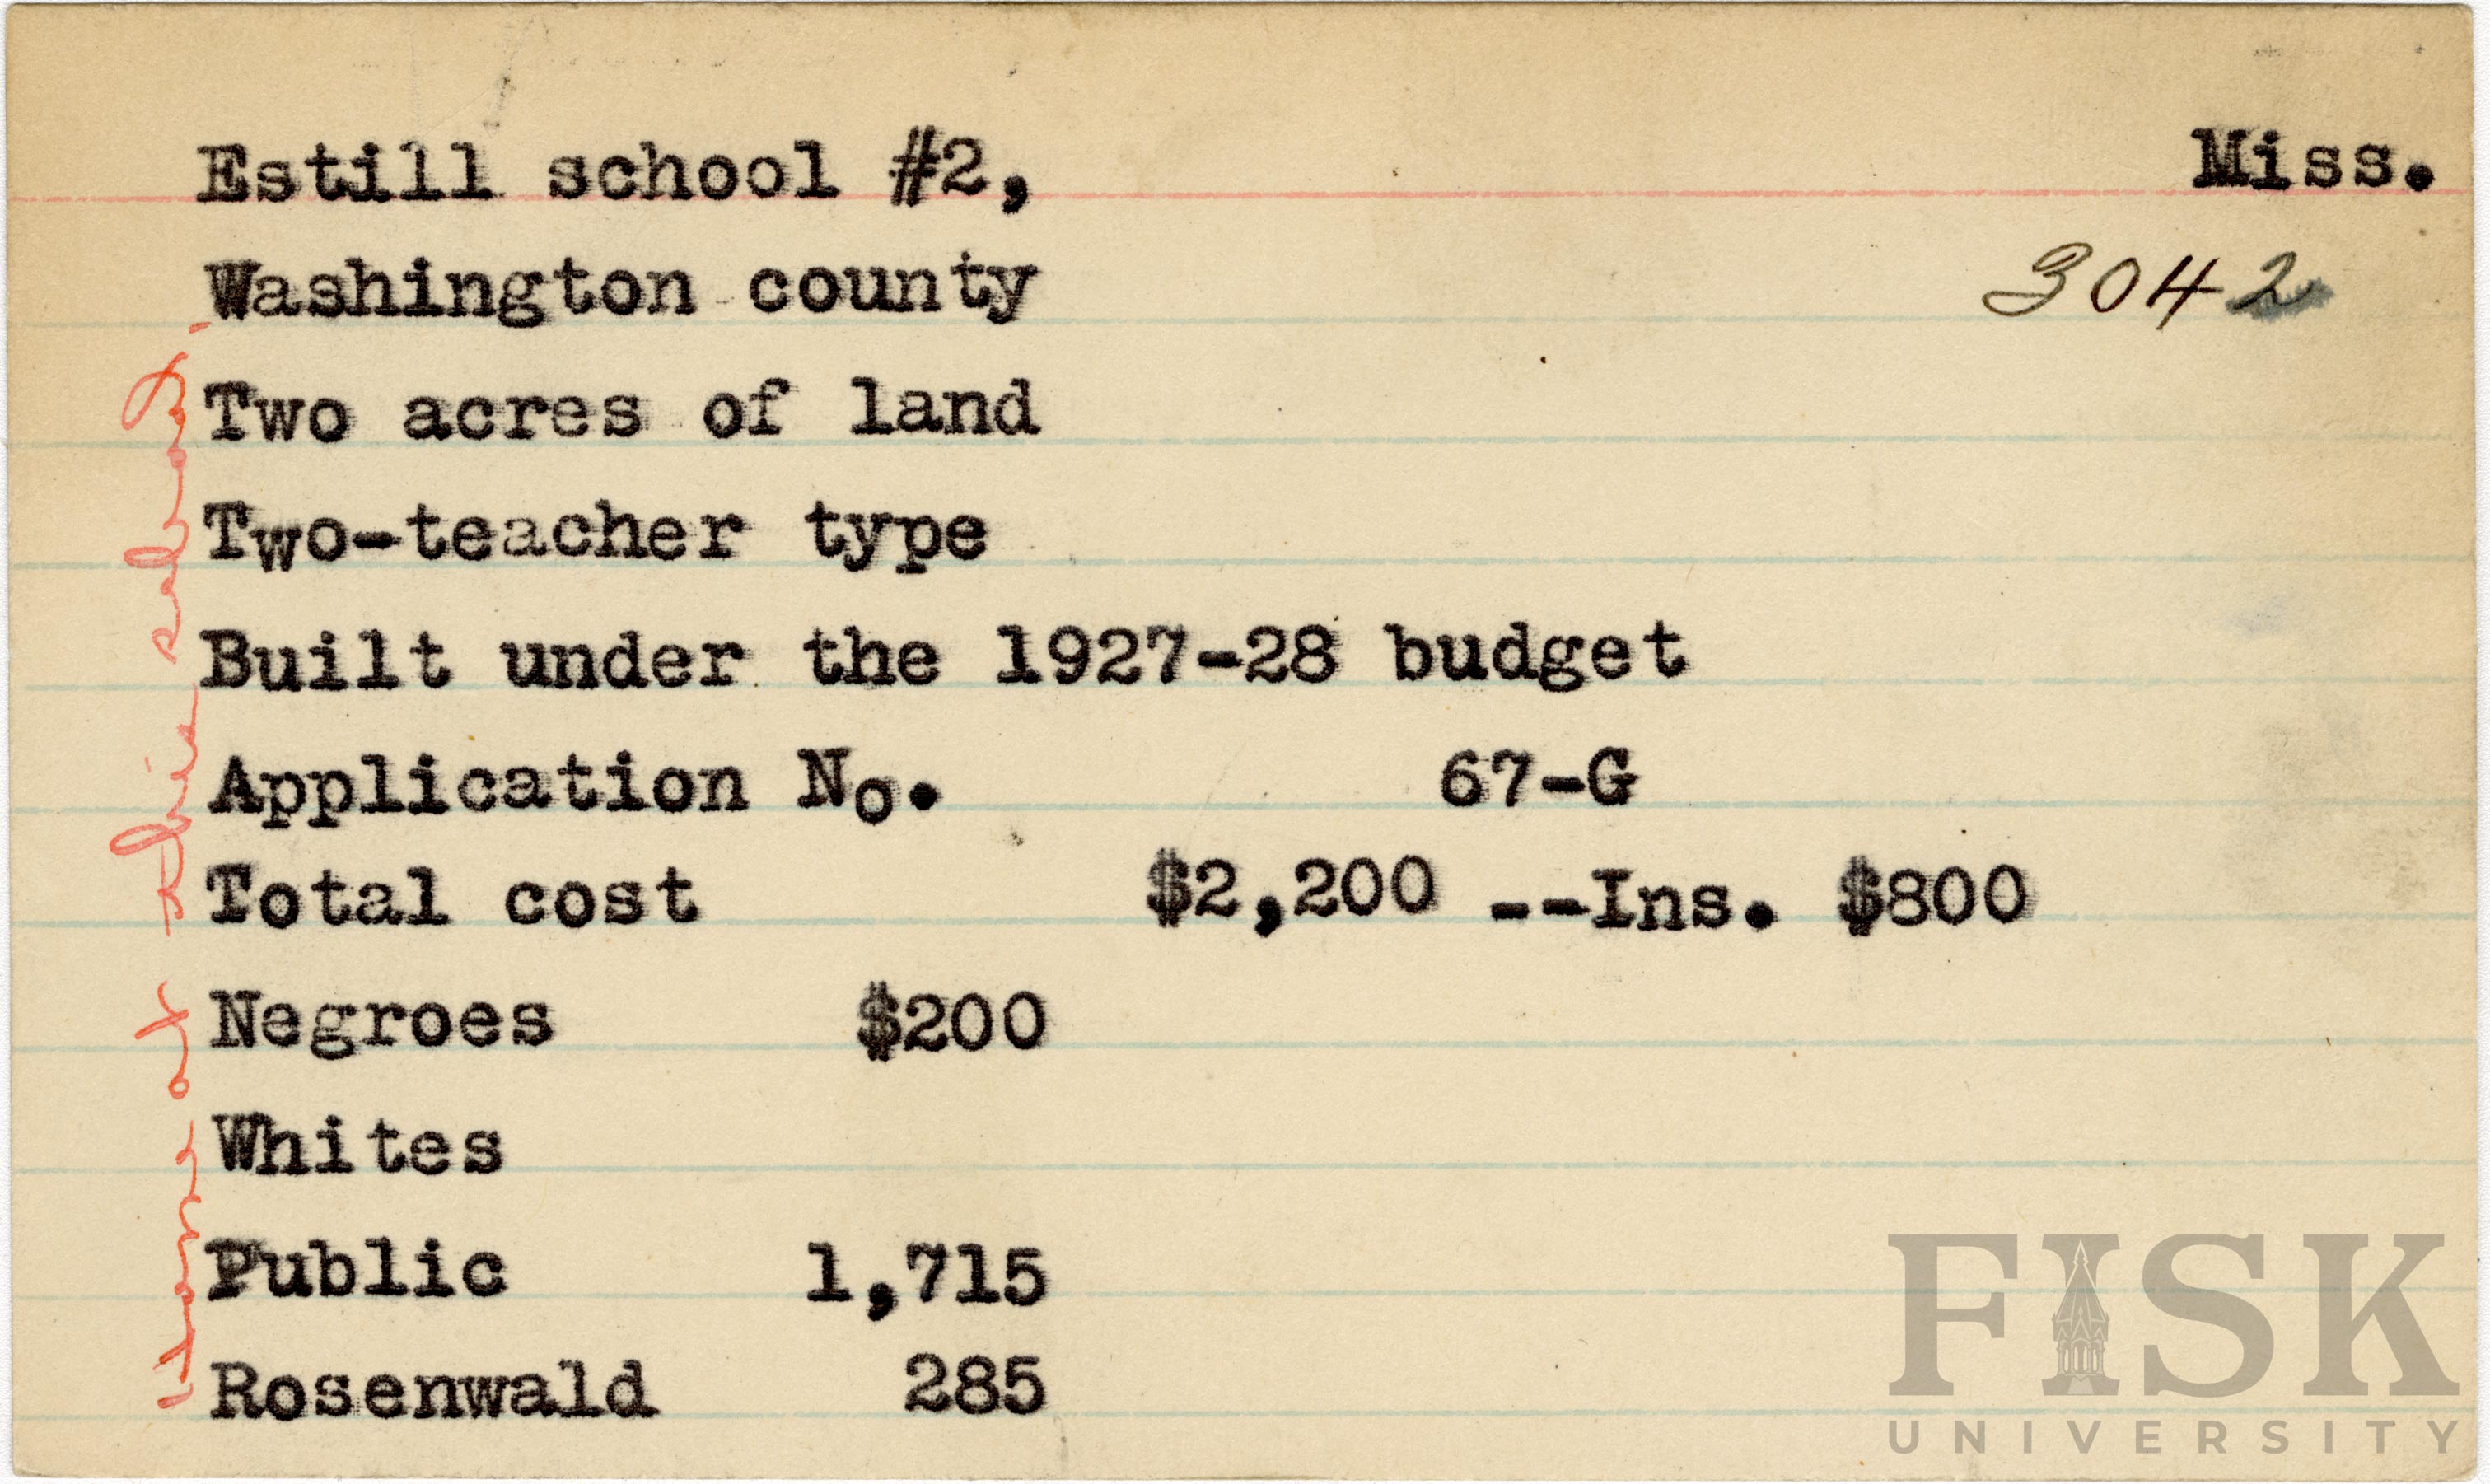 Estill school #2, Miss.
Washington county 3042
Two acres of land
Two-teacher type
Built under the 1927-28 budget
Application No. 67-G
Total cost $2,200 --Ins. $800
Negroes $200
Whites
Public 1,715
Rosenwald 285
of this school.
FISK
UNIVERSITY